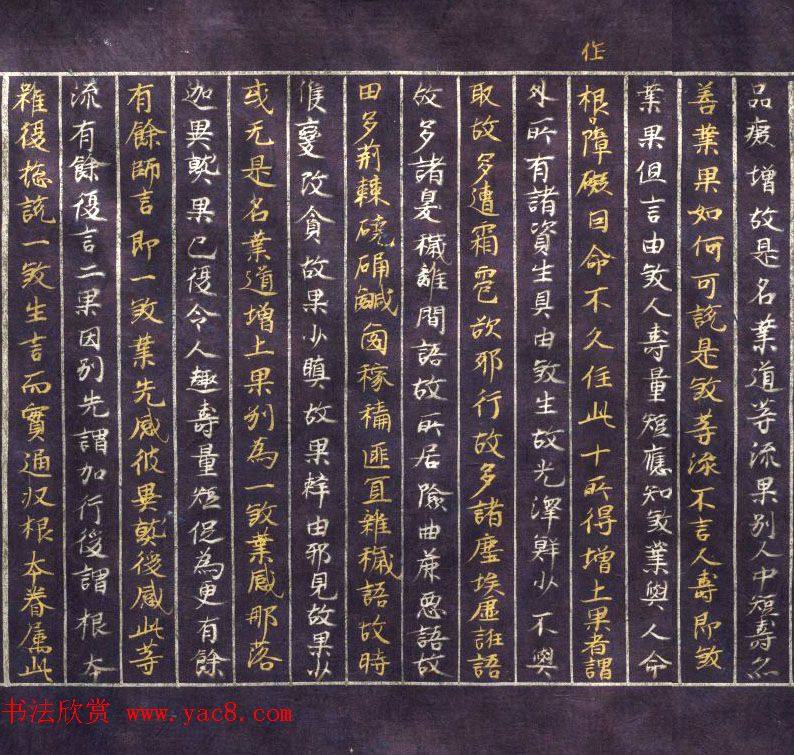 品癡增故是名業道等流果別人中短壽亦
善業果如何可說是殺等流不言人壽即殺
業果但言由殺人壽量短應知殺業與人命
作
根障礙因命不久住此十所得增上果者謂
外所有諸資生具由殺生故光澤鮮少不與
取故多遭霜雹欲邪行故多諸塵埃虛誑語
故多諸臭穢離間語故所居險曲麁惡語故
田多荊棘磽确鹹鹵稼穡匪宜雜穢語故時
候變改貪故果少瞋故果辣由邪見故果少
或无是名業道增上果別為一殺業感那落
迦異熟果已復令人趣壽量短促為更有餘
有餘師言即一殺業先感彼異熟後感此等
流有餘復言二果因別先謂加行後謂根本
雖復總說一殺生言而實通收根本眷屬此
书法欣赏 www.yac8.com